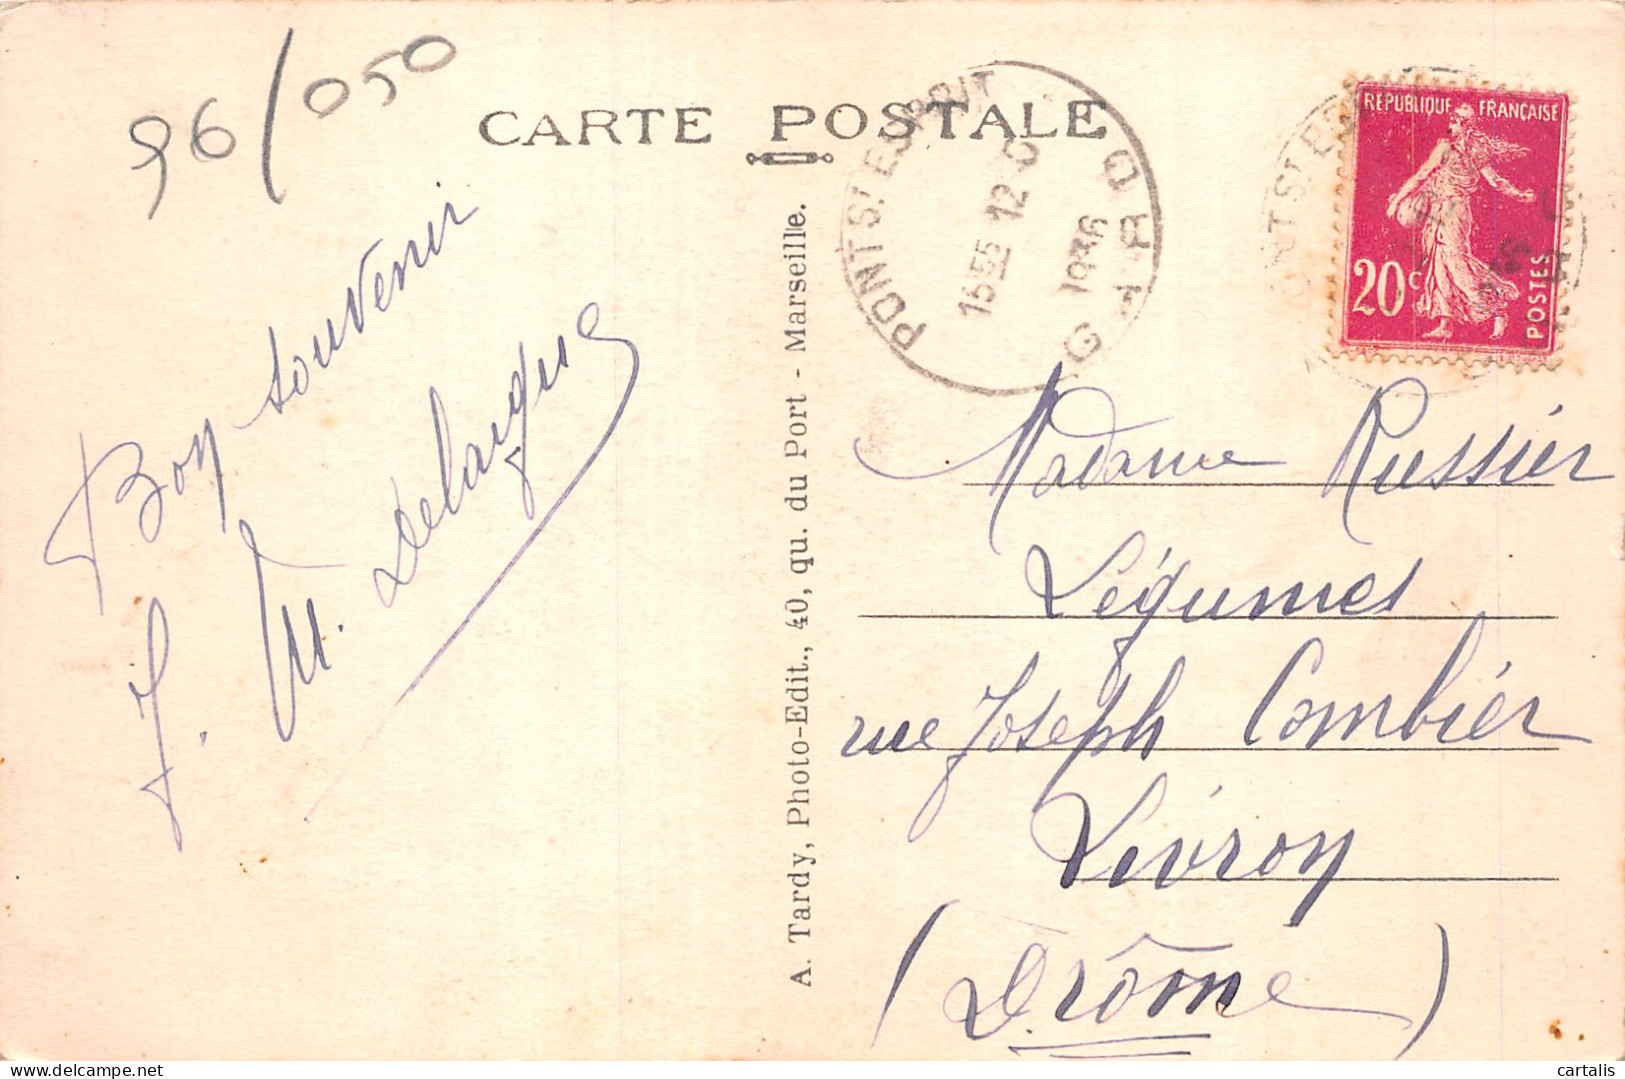 96/050
CARTE POSTALE
PONT ST ESPRIT
GARD
15 55
12 - 5
1936
REPUBLIQUE FRANÇAISE
20c
POSTES
Bon souvenir
J. M. Delaigue
A. Tardy, Photo-Edit., 40, qu. du Port - Marseille.
Madame Russier
Légumes
rue Joseph Combier
Livron
(Drôme)
delcampe.net
cartalis